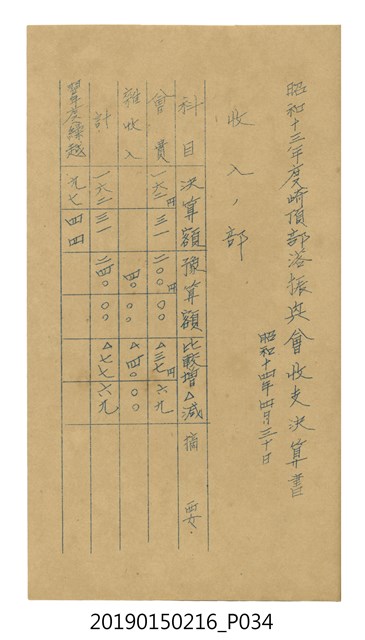 昭和十三年度崎頂部落振興會收支決算書
昭和十四年四月三十日
收入ノ部
科目 決算額 豫算額 比較增△減 摘要
會費 一六二円三一 二〇〇円〇〇 △三七円六九
雜收入 四〇〇〇 △四〇〇〇
計 一六二三一 二四〇〇〇 △七七六九
翌年度繰越 九七四四
20190150216_P034